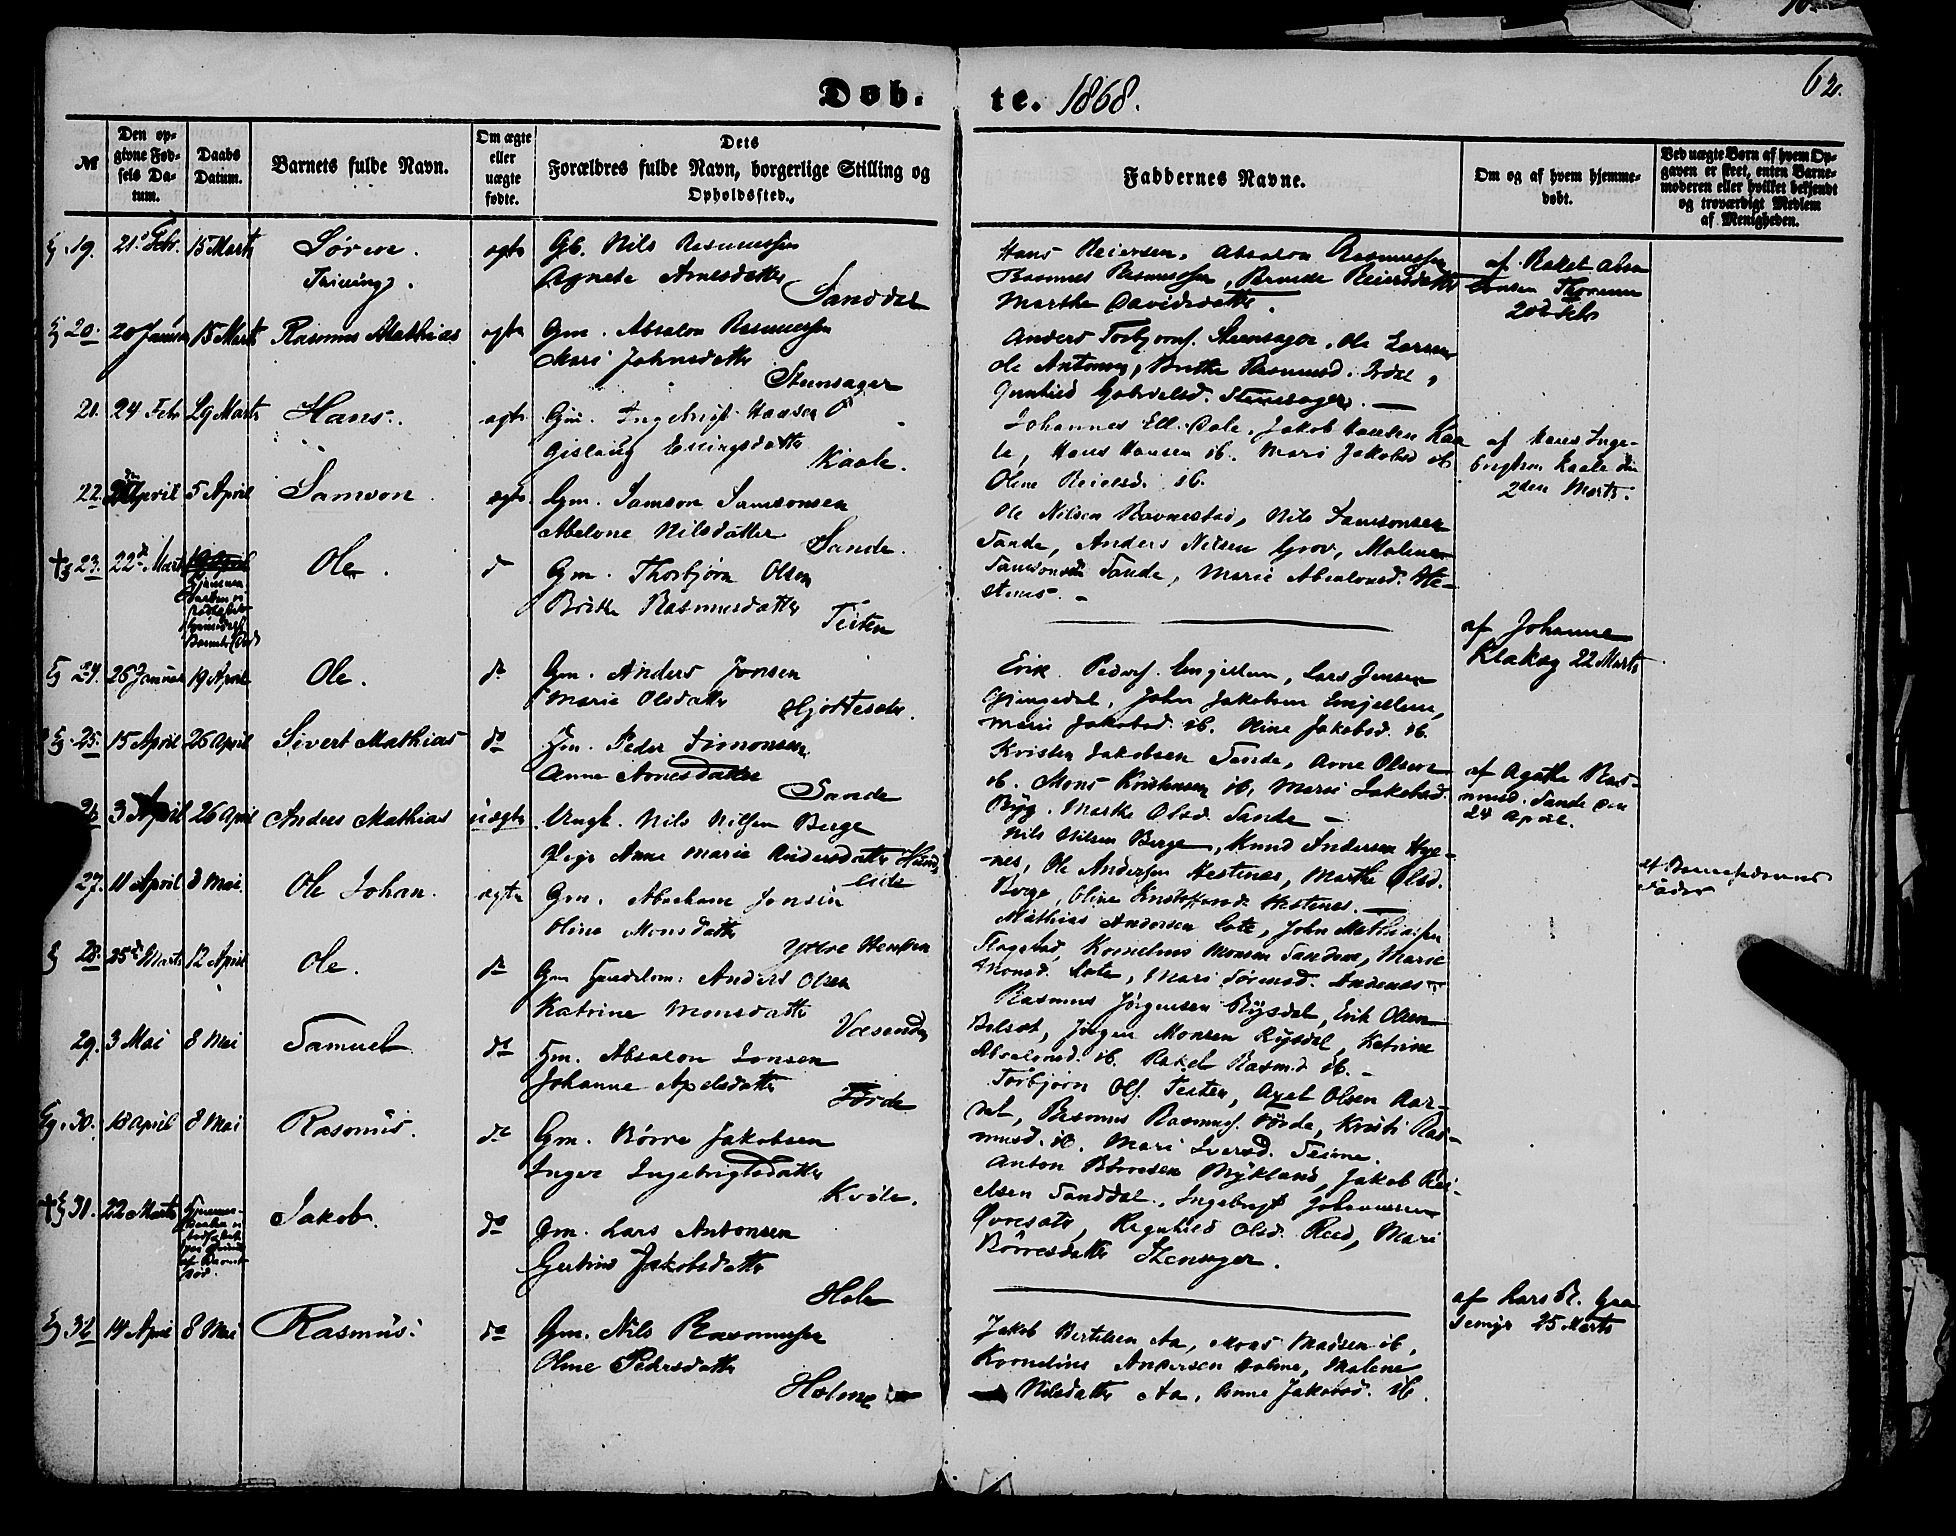 Døb. te. 1868.
62.
№
Den opgivne Fødsels Datum.
Daabs Datum.
Barnets fulde Navn.
Om ægte eller uægte fødte.
Dets Forældres fulde Navn, borgerlige Stilling og Opholdssted.
Faddernes Navne.
Om og af hvem hjemmedøbt.
Ved uægte Børn af hvem Opgaven er skeet, enten Barnemoderen eller hvilket bekjendt og troværdigt Medlem af Menigheden.
19. 21 Febr. 15 Marts Sören ægte Gb. Nils Rasmussen
Agnete Arnesdatter
Sanddal
Hans Reiersen, Absalon Rasmussen
Rasmus Rasmussen, Reiersdatter
Marthe Davidsdatter.
af Rakel
20. 20 Januar 15 Marts Rasmus Mathias ægte Gm. Absalon Rasmussen
Mari Johnsdatter
Stensager
Anders Torbjörns. Stensager, Ole Larsen
Ole Antonsen, Brithe Rasmusd.
Gunhild Gabrielsd. Stensager. —
21. 24 Febr 29 Marts Hans. ægte Gm. Ingebrigt Hansen
Gislaug Ellingsdatter
Kaale.
Johannes Ell. Dale, Jakob Hansen Kaa
le, Hans Hansen ib. Mari Jakobsd ib
Oline Reiersd. ib.
af Hans Inge-
brigtsen Kaale den
2den Marts.
22. April 5 April Samson ægte Gm. Samson Samsonsen
Abelone Nilsdatter
Sande.
Ole Nilsen Ravnestad, Nils Samsonsen
Sande, Anders Nilsen Grov, Malene
Samsonsd Sande, Marie Absalonsd. He-
stenes. -
23. 22d Marts Ole. d Gm. Thorbjörn Olsen
Brithe Rasmusdatter
Teiten
af Johanne
Klakeg 22 Marts
24. 26 Januar 19 April Ole. do Gm. Anders Jonsen
Marie Olsdatter
Hjortesæter.
Erik Peders. Emjellem, Lars Jensen
Gjengedal, John Jakobsen Emjellem,
Marie Jakobsd. ib. Oline Jakobsd. ib.
25. 15 April 26 April Sivert Mathias do Gm. Peder Simonsen
Anne Arnesdatter
Sande
Kristen Jakobsen Sande, Arne Olsen
ib. Mons Kristensen ib, Mari Jakobsd.
Ryg. Marthe Olsd. Sande —
af Agathe Ras-
musd. Sande den
24 April.
26 3 April 26 April Anders Mathias uægte Ungk. Nils Nilsen Berge
Pige Anne Marie Andersdatter
Nils Nilsen Berge, Knud Andersen Hye-
nes, Ole Andersen Hestenes, Marthe Olsd.
Berge, Oline Hestenes. —
af Barnefaderens
Fader
27. 11 April 3 Mai. Ole Johan. ægte Gm. Abraham Jonsen
Oline Monsdatter
Ytre
Mathias Andersen Lote, John Mathiassen
Kornelius Monsen Sandene, Marie
Monsd. Lote, Mari Sörensd. Andenæs
28. 25de Marts 12 April Ole. do Gm Anders Olsen
Katrine Monsdatter
Vasenden
Rasmus Jörgensen Rysdal, Erik Olsen
Bolset, Jörgen Monsen Rysdal, Katrine
Absalonsd. ib. Rakel Rasmd ib. -
29. 3 Mai 8 Mai Samuel do Gm. Absalon Jonsen
Johanne Apelsdatter
Förde
Torbjörn Ols. Teiten, Axel Olsen Aar-
dal, Rasmus Rasmus. Förde, Kristi Ras-
musd. ib. Mari Iversd. Teime.
30. 18 April 8 Mai Rasmus. do Gm. Börre Jakobsen
Inger Ingebrigtsdatter
Kvile.
Anton Börresen Mykland, Jakob Rei-
ersen Sanddal, Ingebrigt Johannesen
Övresæter, Ragnhild Olsd. Reed, Mari
Börresdatter Stensager.
31. 22 Marts Jakob. do Gm. Lars Antonsen
Gertrud Jakobsdatter
Hole
af Lars R.
25 Marts
32 14 April 8 Mai Rasmus. do Gm. Nils Rasmussen
Oline Pedersdatter
Holme
Jakob Bertelsen Aa, Mons Madsen ib,
Kornelius Andersen Holme, Malene
Nilsdatter Aa, Anne Jakobsd. ib.